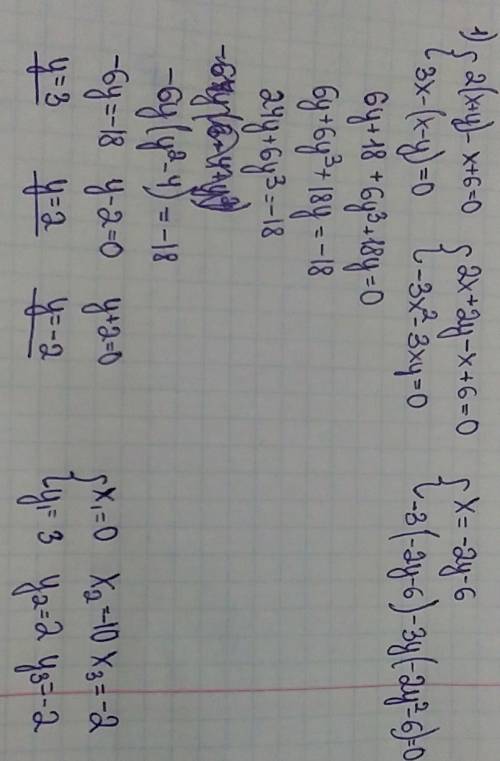 1) { 2(x+y) - x+6=0 { 2x+2y-x+6=0 { x = -2y-6
3x-(x-y)=0 -3x²-3xy=0 -3(-2y-6)-3y(-2y²-6)=0
6y+18+6y³+18y=0
6y+6y³+18y=-18
24y+6y³=-18
-6y(y²-4)=-18
-6y=-18 y-2=0 y+2=0
y=3 y=2 y=-2
{ x₁=0 x₂=-10 x₃=-2
y₁=3 y₂=2 y₃=-2